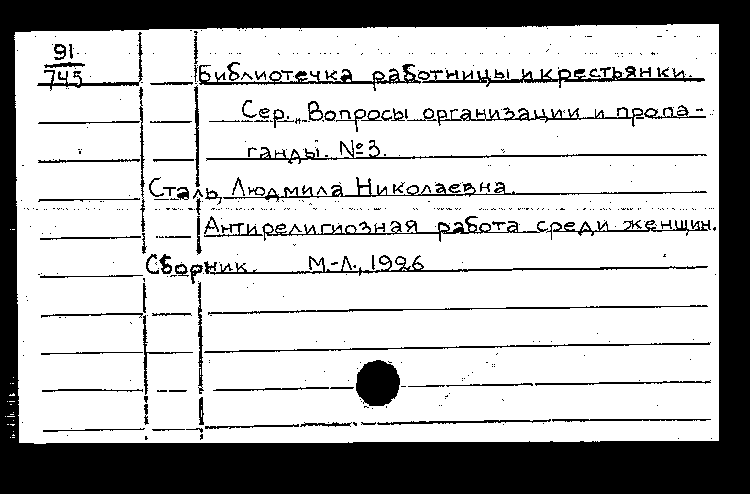 91
745
Библиотечка работницы и крестьянки.
Сер. „Вопросы организации и пропа-
ганды. №3.
Сталь, Людмила Николаевна.
Антирелигиозная работа среди женщин.
Сборник. М.-Л., 1926